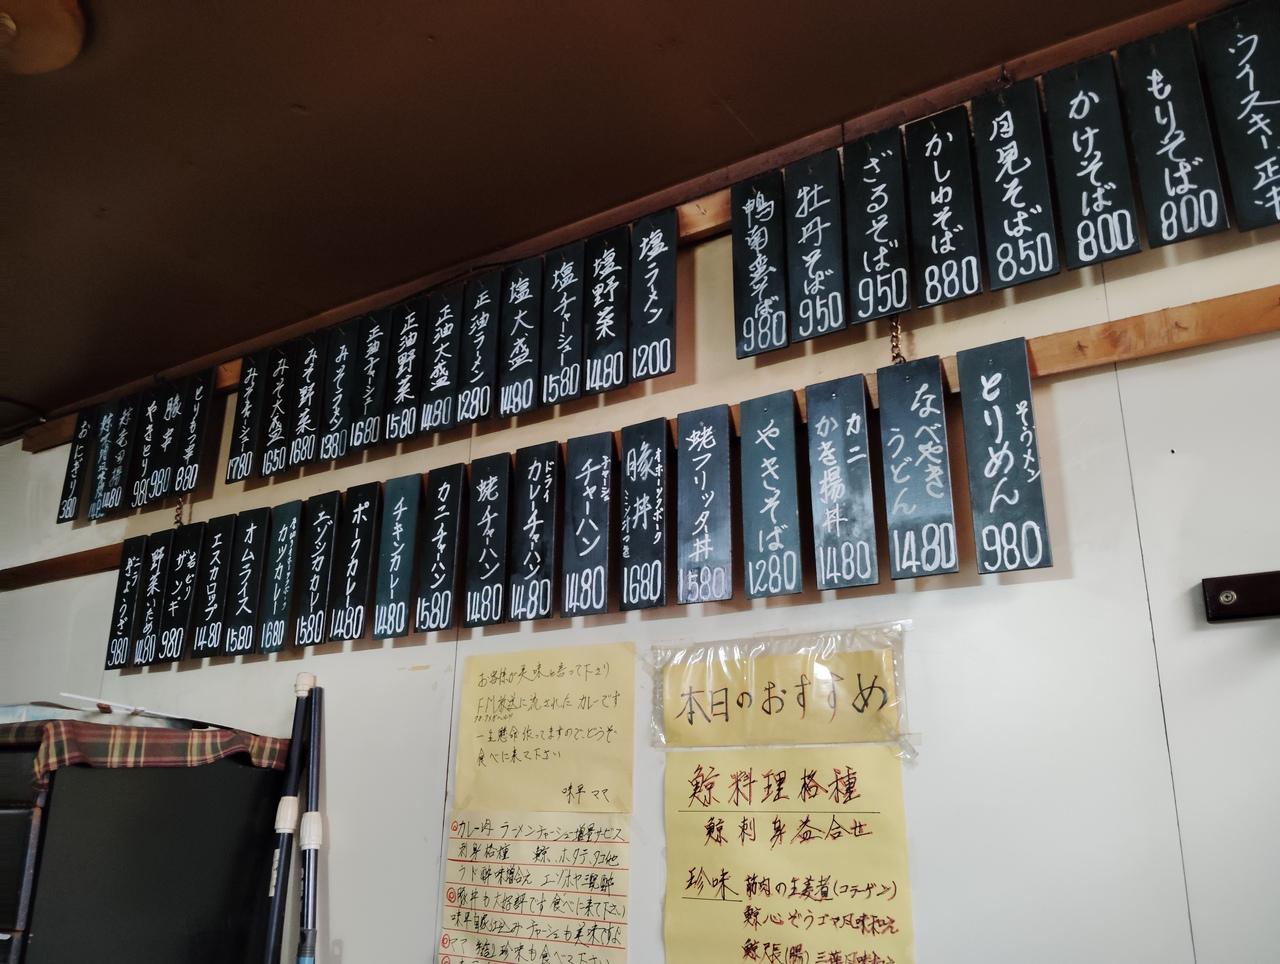 ウイスキー正中
もりそば 800
かけそば 800
月見そば 850
かしわそば 880
ざるそば 950
牡丹そば 950
鴨南蛮そば 980
塩ラーメン 1200
塩野菜 1480
塩チャーシュー 1580
塩大盛 1480
正油ラーメン 1280
正油大盛 1480
正油野菜 1580
正油チャーシュー 1680
みそラーメン 1380
みそ野菜 1680
みそ大盛 1650
みそチャーシュー 1780
とりもつ 880
豚串 980
やきとり 980
1480
おにぎり 380
とりめん そうメン 980
なべやき うどん 1480
カニ かき揚丼 1480
やきそば 1280
蛯フリッタ丼 1580
オホーツクポーク 豚丼 1680
チャーシュ チャーハン 1480
ドライ カレーチャーハン 1480
蛯チャーハン 1480
カニチャーハン 1580
チキンカレー 1480
ポークカレー 1480
エゾシカカレー 1580
カツカレー 1680
オムライス 1580
エスカロップ 1480
ザンギ 980
野菜いため 1480
ニラ ぎょうざ 980
お客様が美味と言って下さり
FM放送に流された カレーです
一生懸命作ってますので、どうぞ
食べに来て下さい
味平 ママ
カレー肉 ラーメンチャーシュー増量サービス
刺身各種 鯨、ホタテ、タコ他
豚丼も大好評です食べに来て下さい
味平自家仕込みチャーシュも美味ですよ
ママ 珍味も食べて下さい
本日のおすすめ
鯨料理各種
鯨刺身盛合せ
珍味 筋肉の生姜煮(コラーゲン)
鯨心ぞうゴマ風味和え